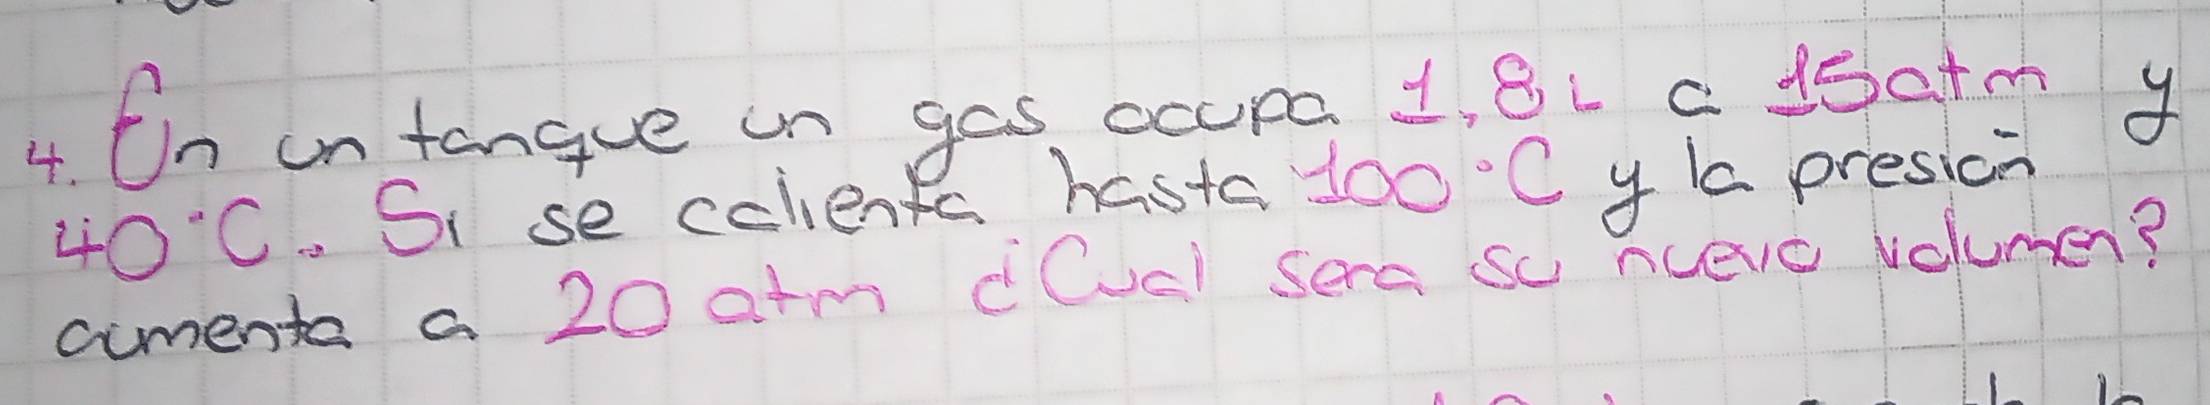 4. En un tanque un gas ocupa 1,8L a 15atm y
40°C. Si se calienta hasta 100°C y la presión
aumenta a 20 atm ¿Cual sera su nuevo volumen?